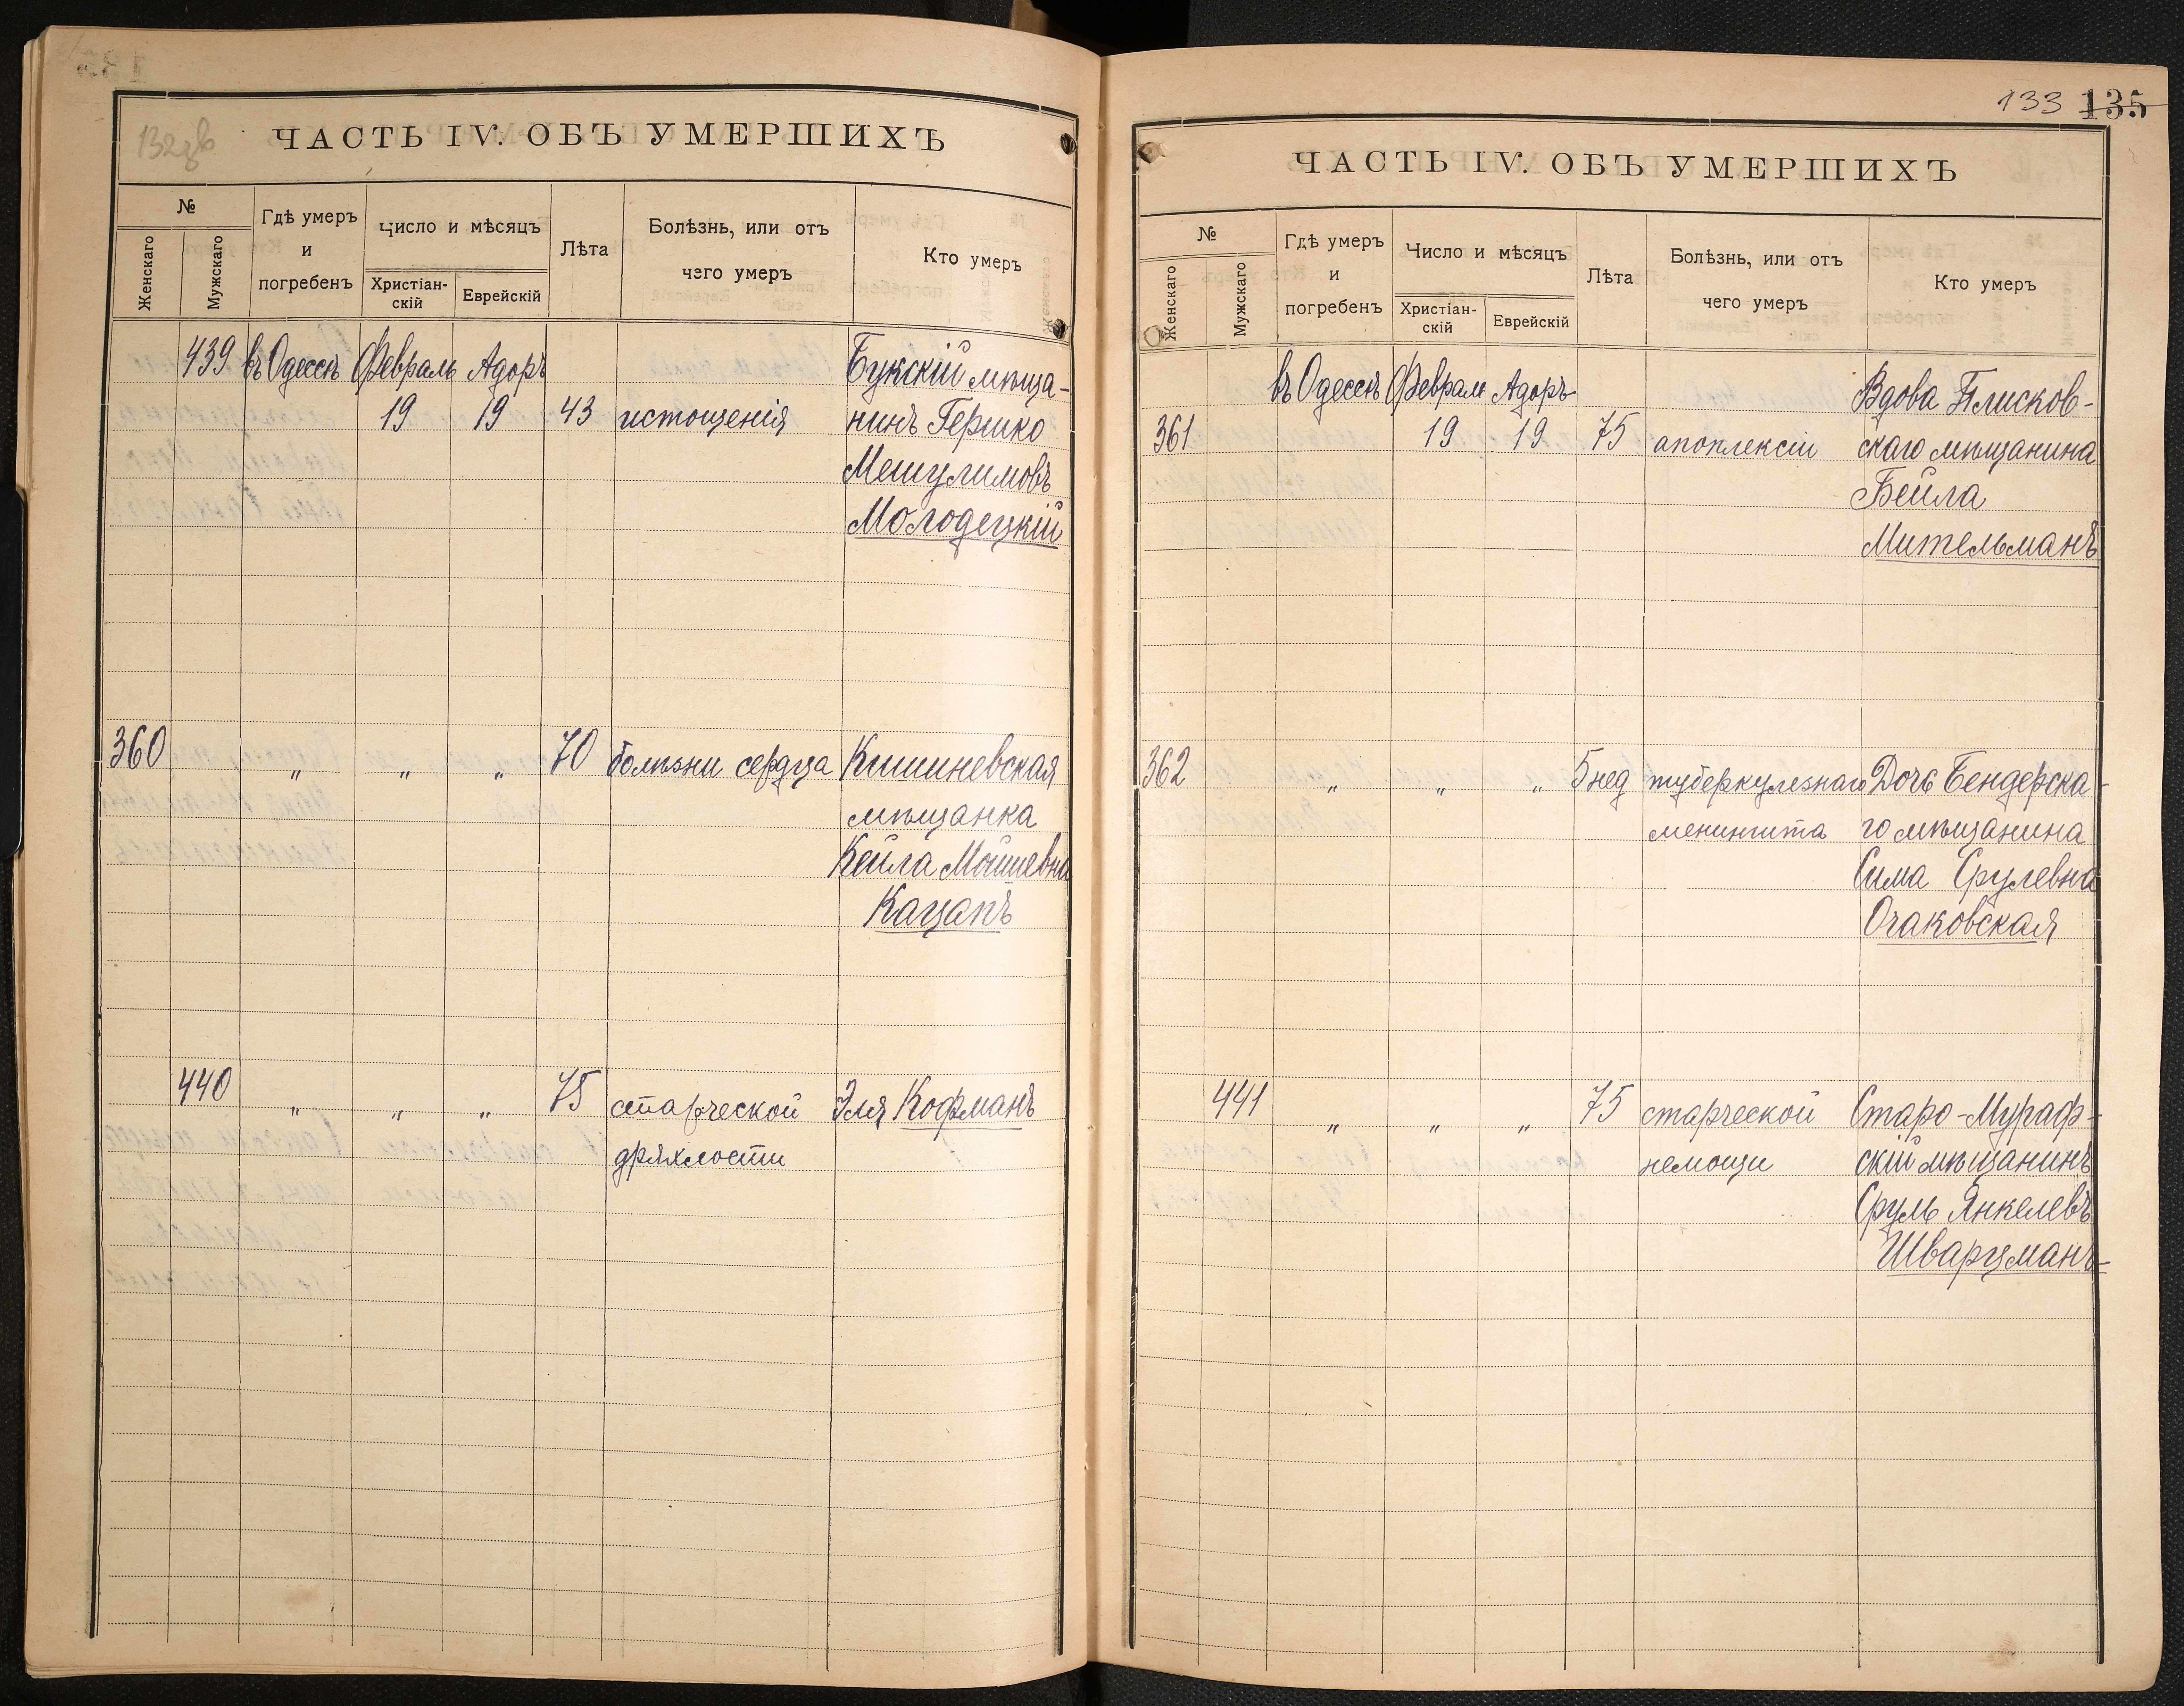 132зв
ЧАСТЬ IV. ОБЪ УМЕРШИХЪ
№
Женскаго
Мужскаго
Гдѣ умеръ
и
погребенъ
Число и мѣсяцъ
Христіан-
скій
Еврейскій
Лѣта
Болѣзнь, или отъ
чего умеръ
Кто умеръ
439 въ Одессѣ Февраль Адоръ Букскій мѣща-
19 19 43 истощенія нинъ Гершко
Мешулимовъ
Молодецкій
360 " " " 70 болѣзни сердца Кишиневская
мѣщанка
Кейла Мошиевна
Кацапъ
440 " " " 75 старческой Эля Кофманъ
дряхлости
133 135
ЧАСТЬ IV. ОБЪ УМЕРШИХЪ
№
Женскаго
Мужскаго
Гдѣ умеръ
и
погребенъ
Число и мѣсяцъ
Христіан-
скій
Еврейскій
Лѣта
Болѣзнь, или отъ
чего умеръ
Кто умеръ
въ Одессѣ Февраль Адоръ Вдова Плисков-
361 19 19 75 апоплексіи скаго мѣщанина
Бейла
Мительманъ
362 " " " 5 нед туберкулезнаго Дочь Бендерска-
менингита го мѣщанина
Сима Срулевна
Очаковская
441 " " " 75 старческой Старо-Мураф-
немощи скій мѣщанинъ
Сруль Янкелевъ
Шварцманъ